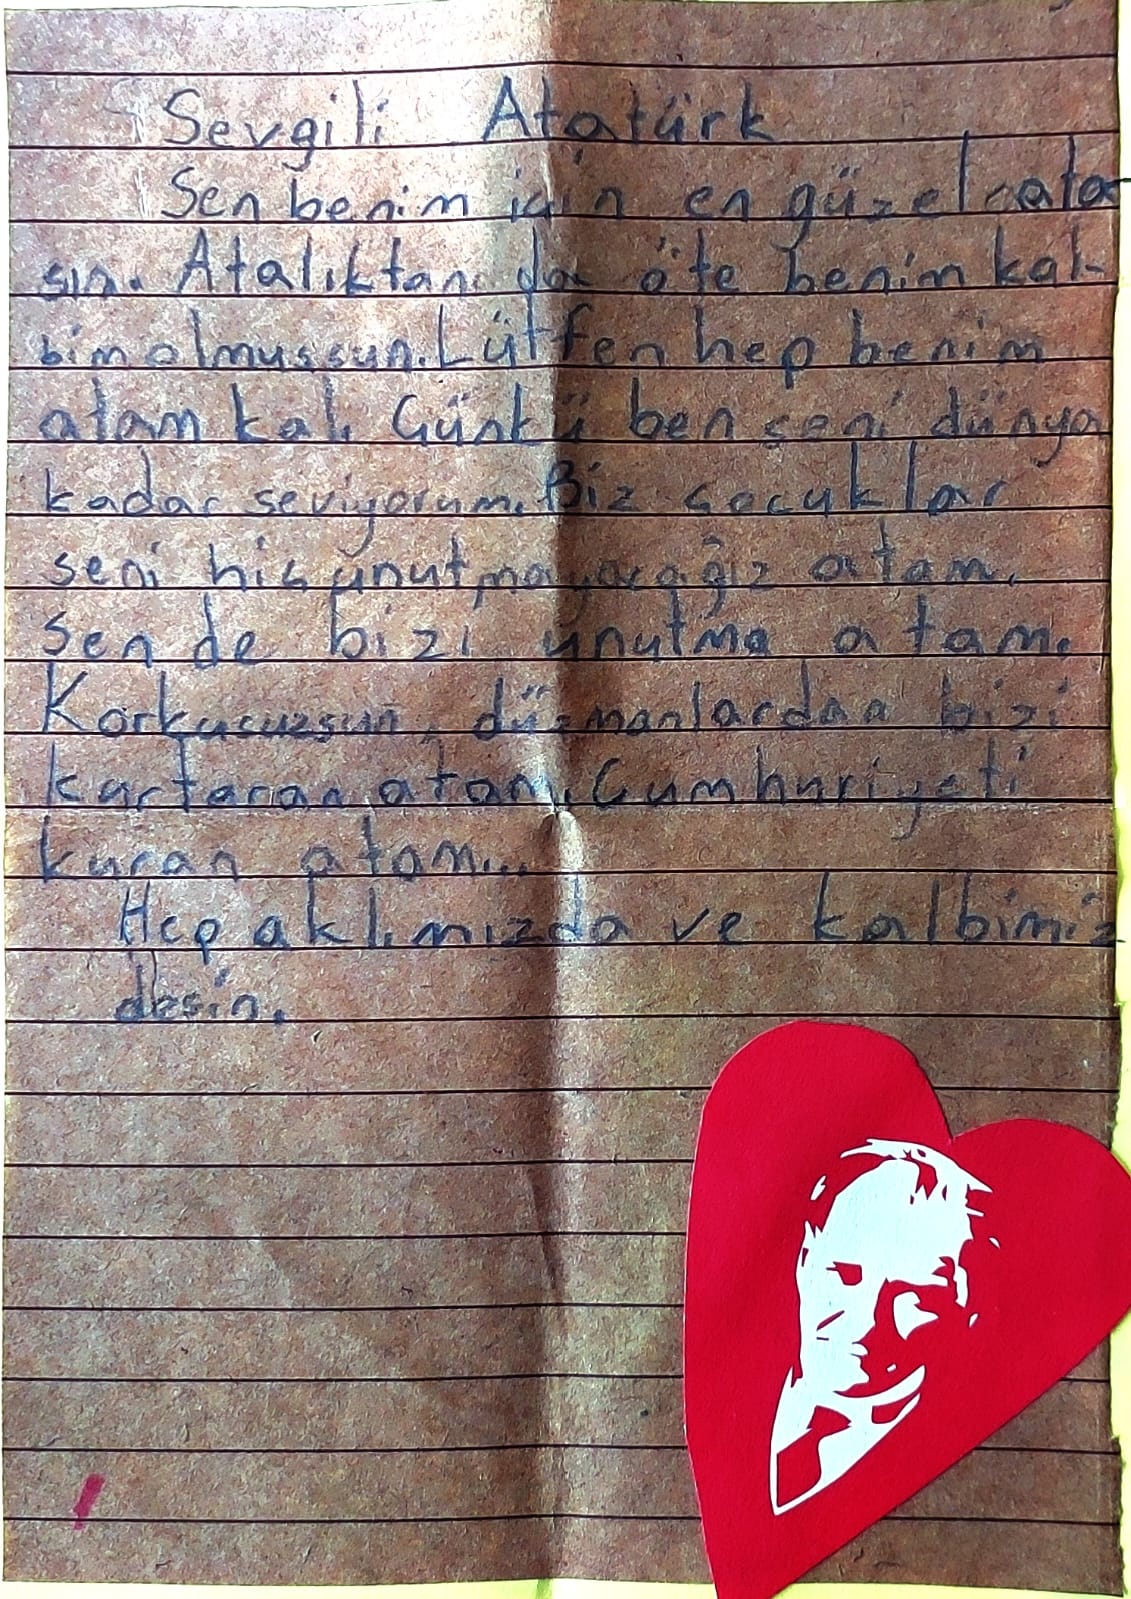 Sevgili Atatürk
Sen benim için en güzel ata
sın. Atalıktan da öte benim kal
bim olmuşsun. Lütfen hep benim
atam kal. Çünkü ben seni dünya
kadar seviyorum. Biz çocuklar
seni hiç unutmayacağız atam.
Sen de bizi unutma atam.
Korkusuzsun, düşmanlardan bizi
kurtaran atam. Cumhuriyeti
kuran atam...
Hep aklımızda ve kalbimiz
desin.